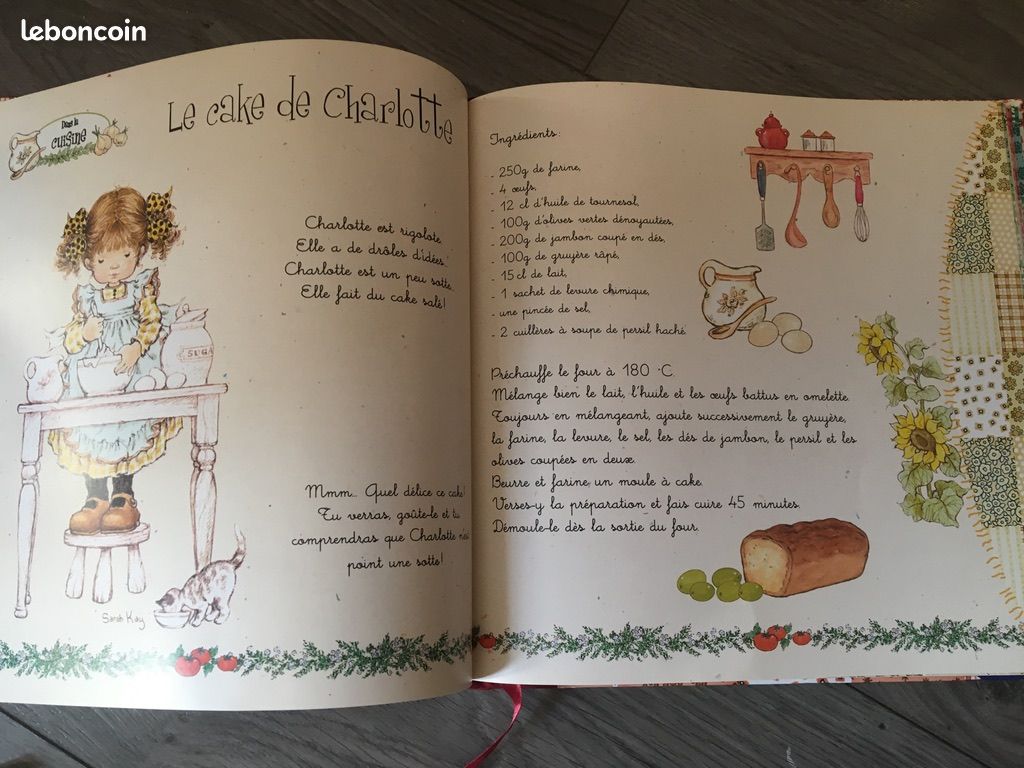 leboncoin
Dans la
cuisine
Le cake de Charlotte
Charlotte est rigolote.
Elle a de drôles d'idées...
Charlotte est un peu sotte.
Elle fait du cake salé!
SUGA
Mmm... Quel délice ce cake!
Tu verras, goûte-le et tu
comprendras que Charlotte n'est
point une sotte!
Sarah Kay
Ingrédients:
- 250g de farine,
- 4 œufs,
- 12 cl d'huile de tournesol,
- 100g d'olives vertes dénoyautées,
- 200g de jambon coupé en dés,
- 100g de gruyère râpé,
- 15 cl de lait,
- 1 sachet de levure chimique,
- une pincée de sel,
- 2 cuillères à soupe de persil haché.
Préchauffe le four à 180 °C.
Mélange bien le lait, l'huile et les œufs battus en omelette.
Toujours en mélangeant, ajoute successivement le gruyère,
la farine, la levure, le sel, les dés de jambon, le persil et les
olives coupées en deux.
Beurre et farine un moule à cake.
Verses-y la préparation et fais cuire 45 minutes.
Démoule-le dès la sortie du four.